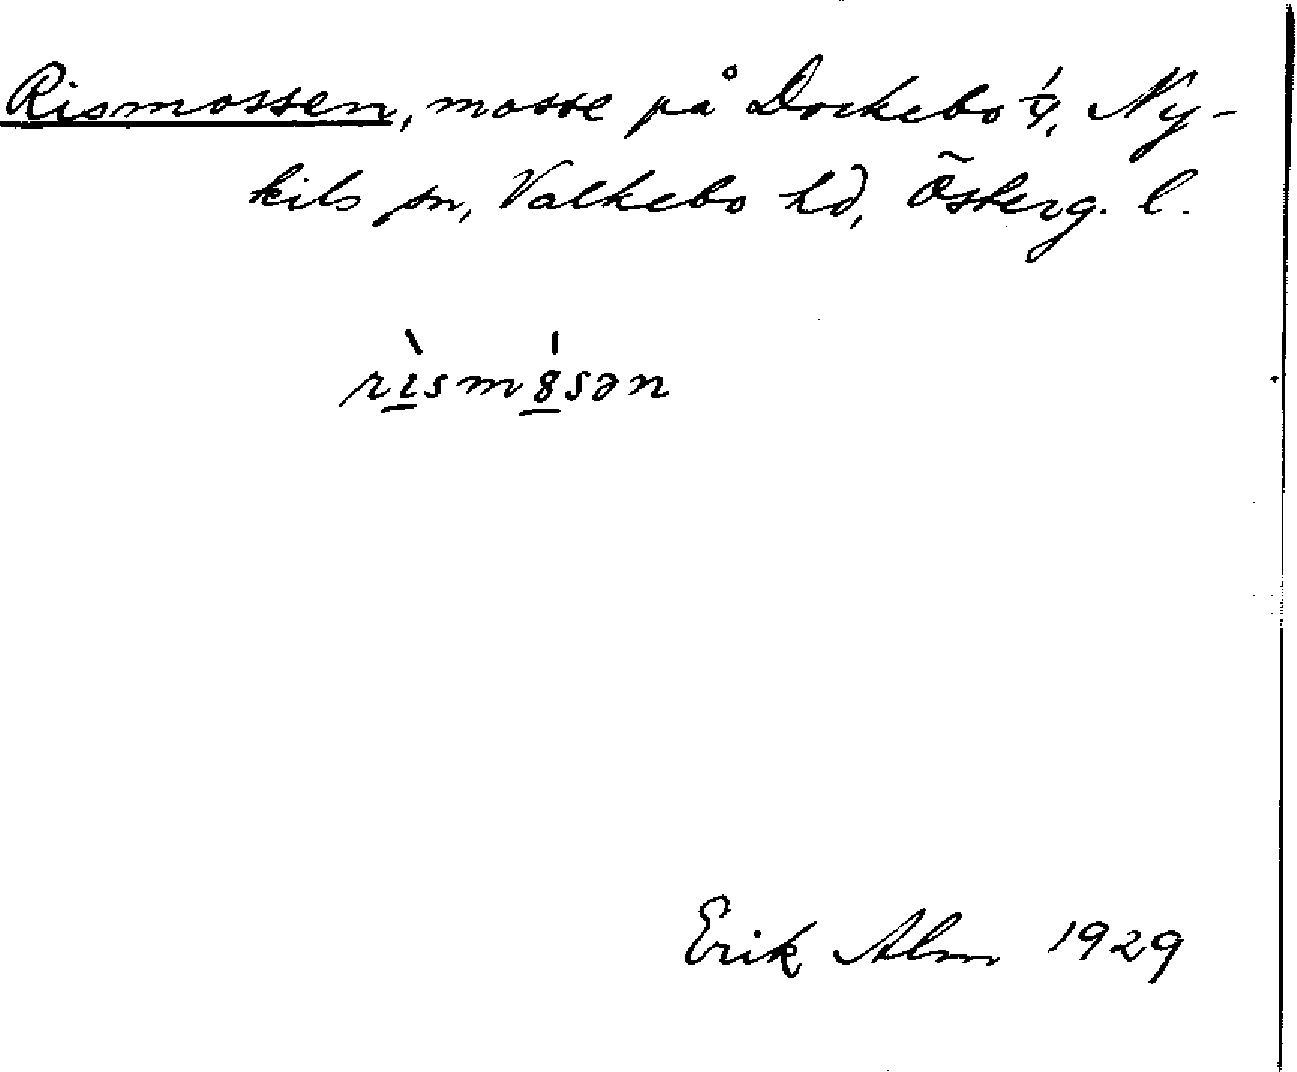 Rismossen, mosse på Dockebo 1/1, Ny-
kils sn, Valkebo hd, Österg. l.
rìsm8́sən
Erik Alm 1929